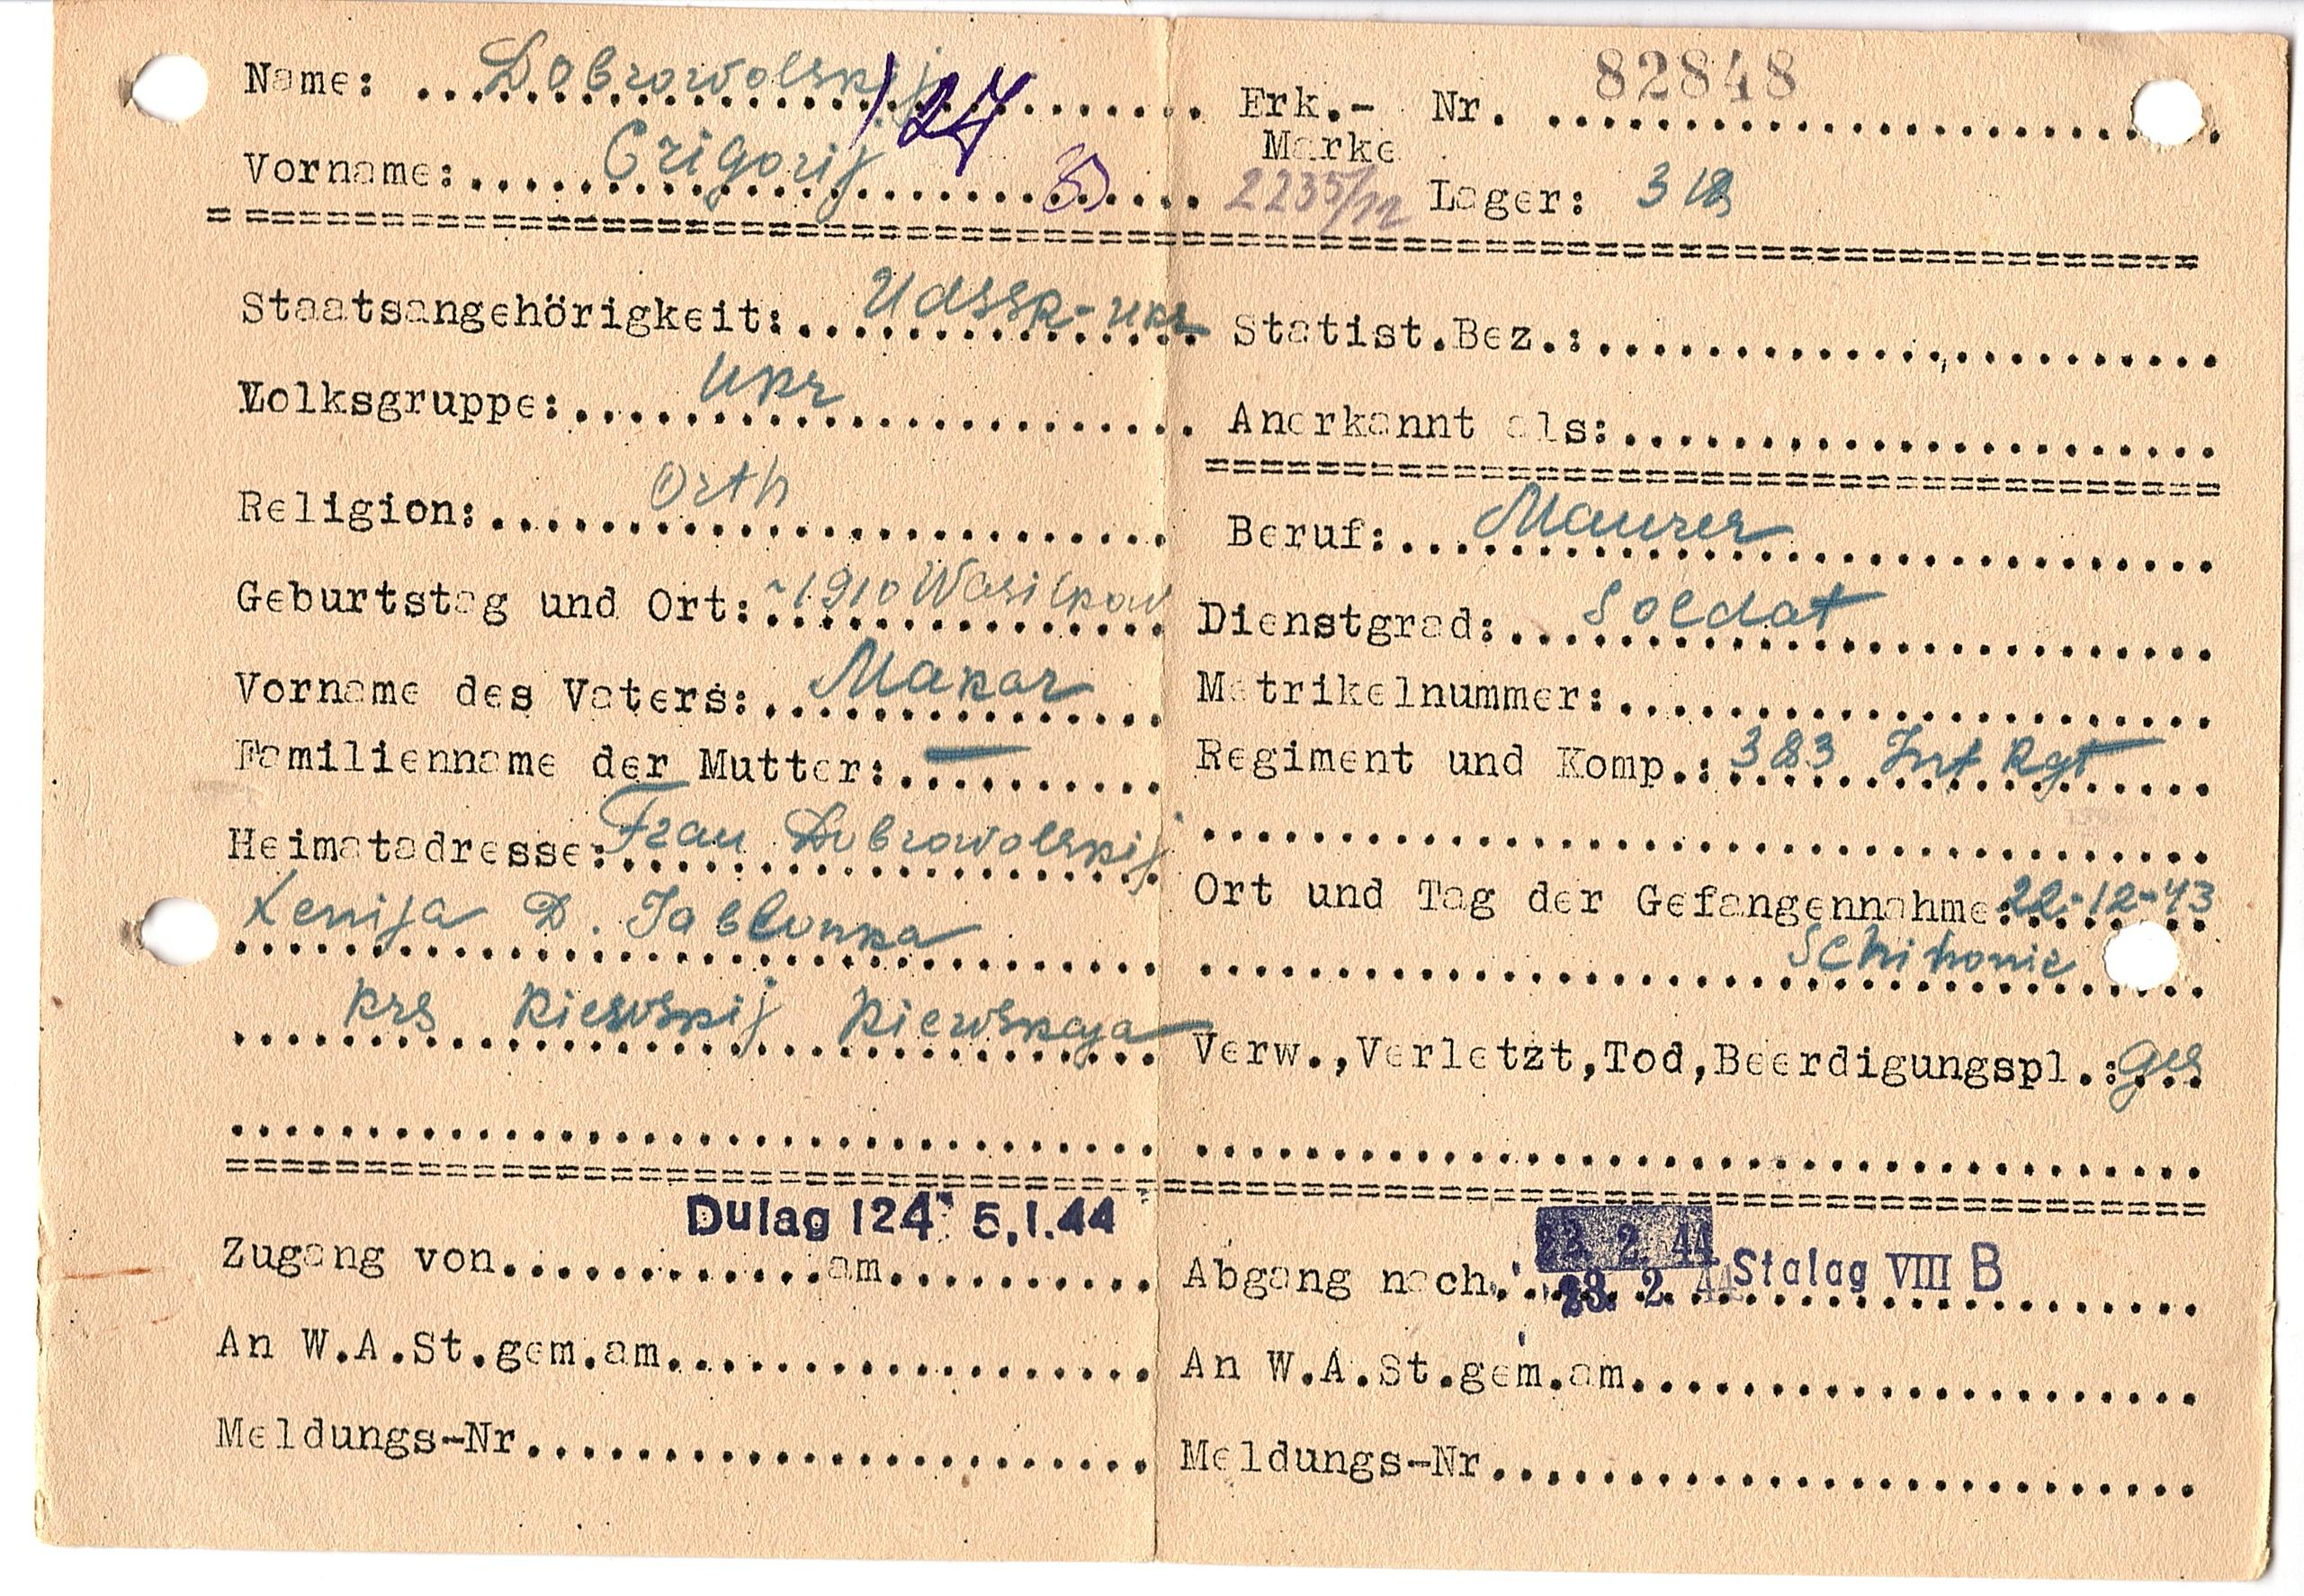 Name: Dobrowolskij
127
Vorname: Grigorij
Erk.-Marke Nr. 82848
2235/12 Lager:
Staatsangehörigkeit: UdSSR-ukr
Volksgruppe: Ukr
Religion: Orth
Geburtstag und Ort: ~1910 Wasilkow
Vorname des Vaters: Makar
Familienname der Mutter: —
Heimatadresse: Frau Dobrowolskij
Xenija D. Jablonka
krs Kiewskij Kiewskaja
Statist.Bez.:
Anerkannt als:
Beruf: Maurer
Dienstgrad: Soldat
Matrikelnummer:
Regiment und Komp.: 383 Inf Rgt
Ort und Tag der Gefangennahme: 22-12-43
Verw.,Verletzt,Tod,Beerdigungspl.: ges
Dulag 124 5.1.44
Zugang von am
An W.A.St.gem.am
Meldungs-Nr
23. 2. 44
Abgang nach 23. 2. 44 Stalag VIII B
An W.A.St.gem.am
Meldungs-Nr